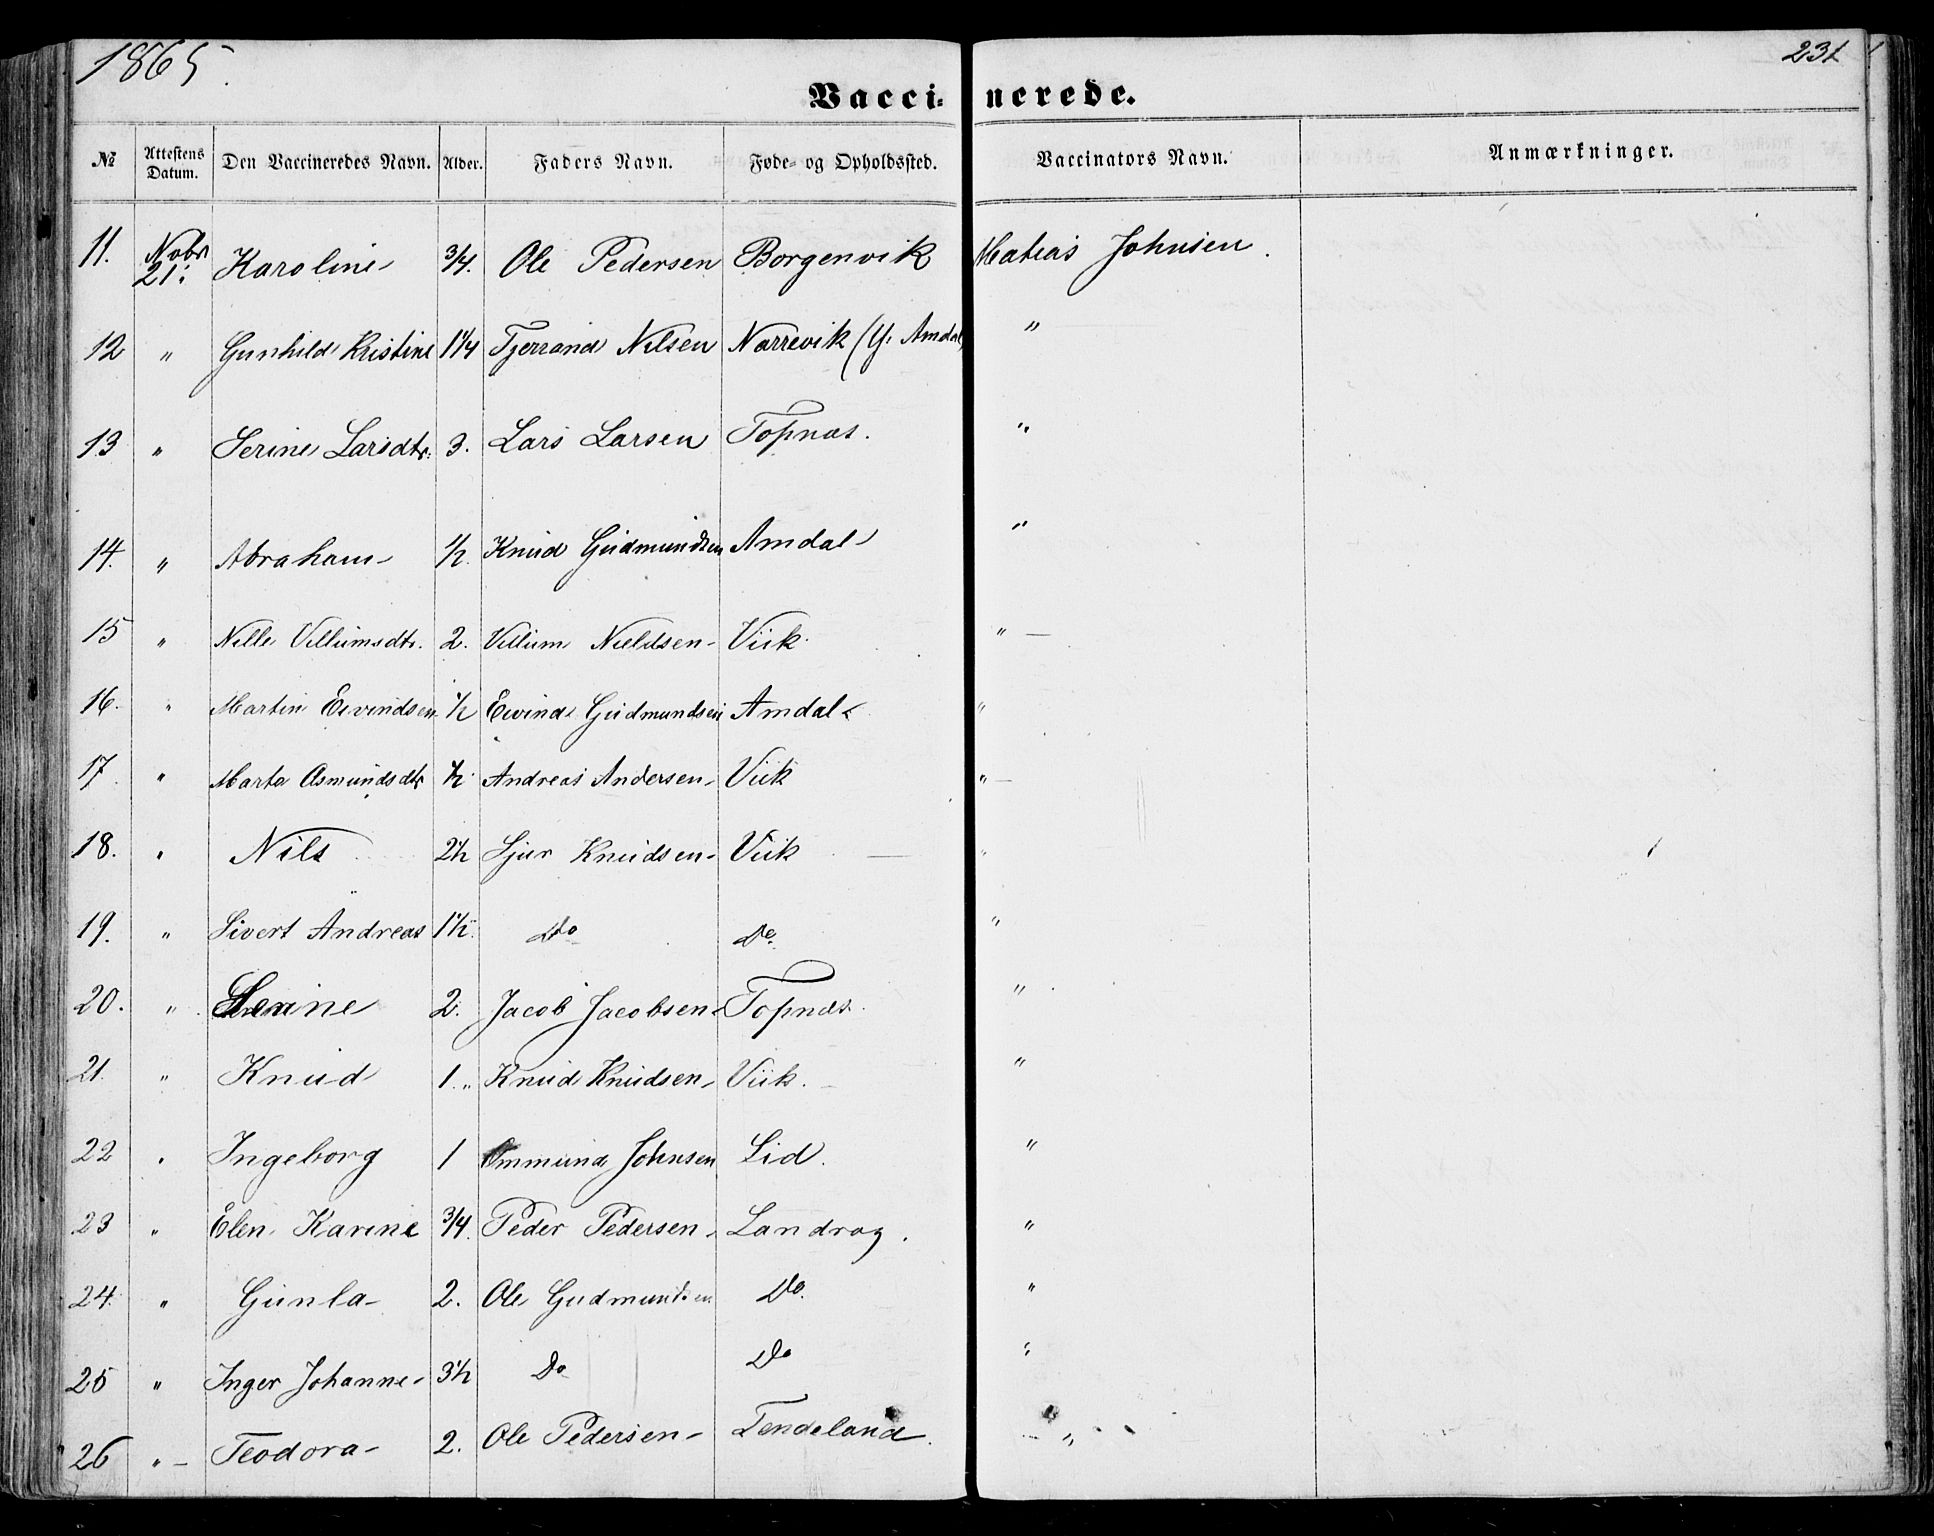 1865.
231
Vaccinerede.
№ Attestens Datum. Den Vaccineredes Navn. Alder. Faders Navn. Føde- og Opholdssted. Vaccinators Navn. Anmærkninger.
11. Nobr. 21. Karoline 3/4. Ole Pedersen Borgenvik Matias Johnsen.
12 " Gunhild Kristine 1 1/4 Tjerrand Nilsen Narrevik (Y. Amdal) "
13 " Serine Larsdtr. 3. Lars Larsen Topnas. "
14. " Abraham 1/2. Knud Gudmundsen Amdal "
15 " Nille Villumsdtr. 2. Villum Nieldsen Viik. "
16. " Martin Eivindsen 1/2 Eivind Gudmundsen Amdal "
17. " Marta Asmundsdtr 1/2 Andreas Andersen Viik "
18. " Nils 2 1/2 Sjur Knudsen Viik "
19. " Sivert Andreas 1 1/2. Do Do. "
20. " Serine 2. Jacob Jacobsen Topnas. "
21. " Knud 1. " Knud Knudsen Viik. "
22 " Ingeborg 1 Ommund Johnsen Lid. "
23 " Elen Karine 3/4. Peder Pedersen Landrog. "
24. " Gunla 2. Ole Gudmundsen Do. "
25 " Inger Johanne 3 1/2 Do Do "
26 " Teodora 2. Ole Pedersen Tendeland. "